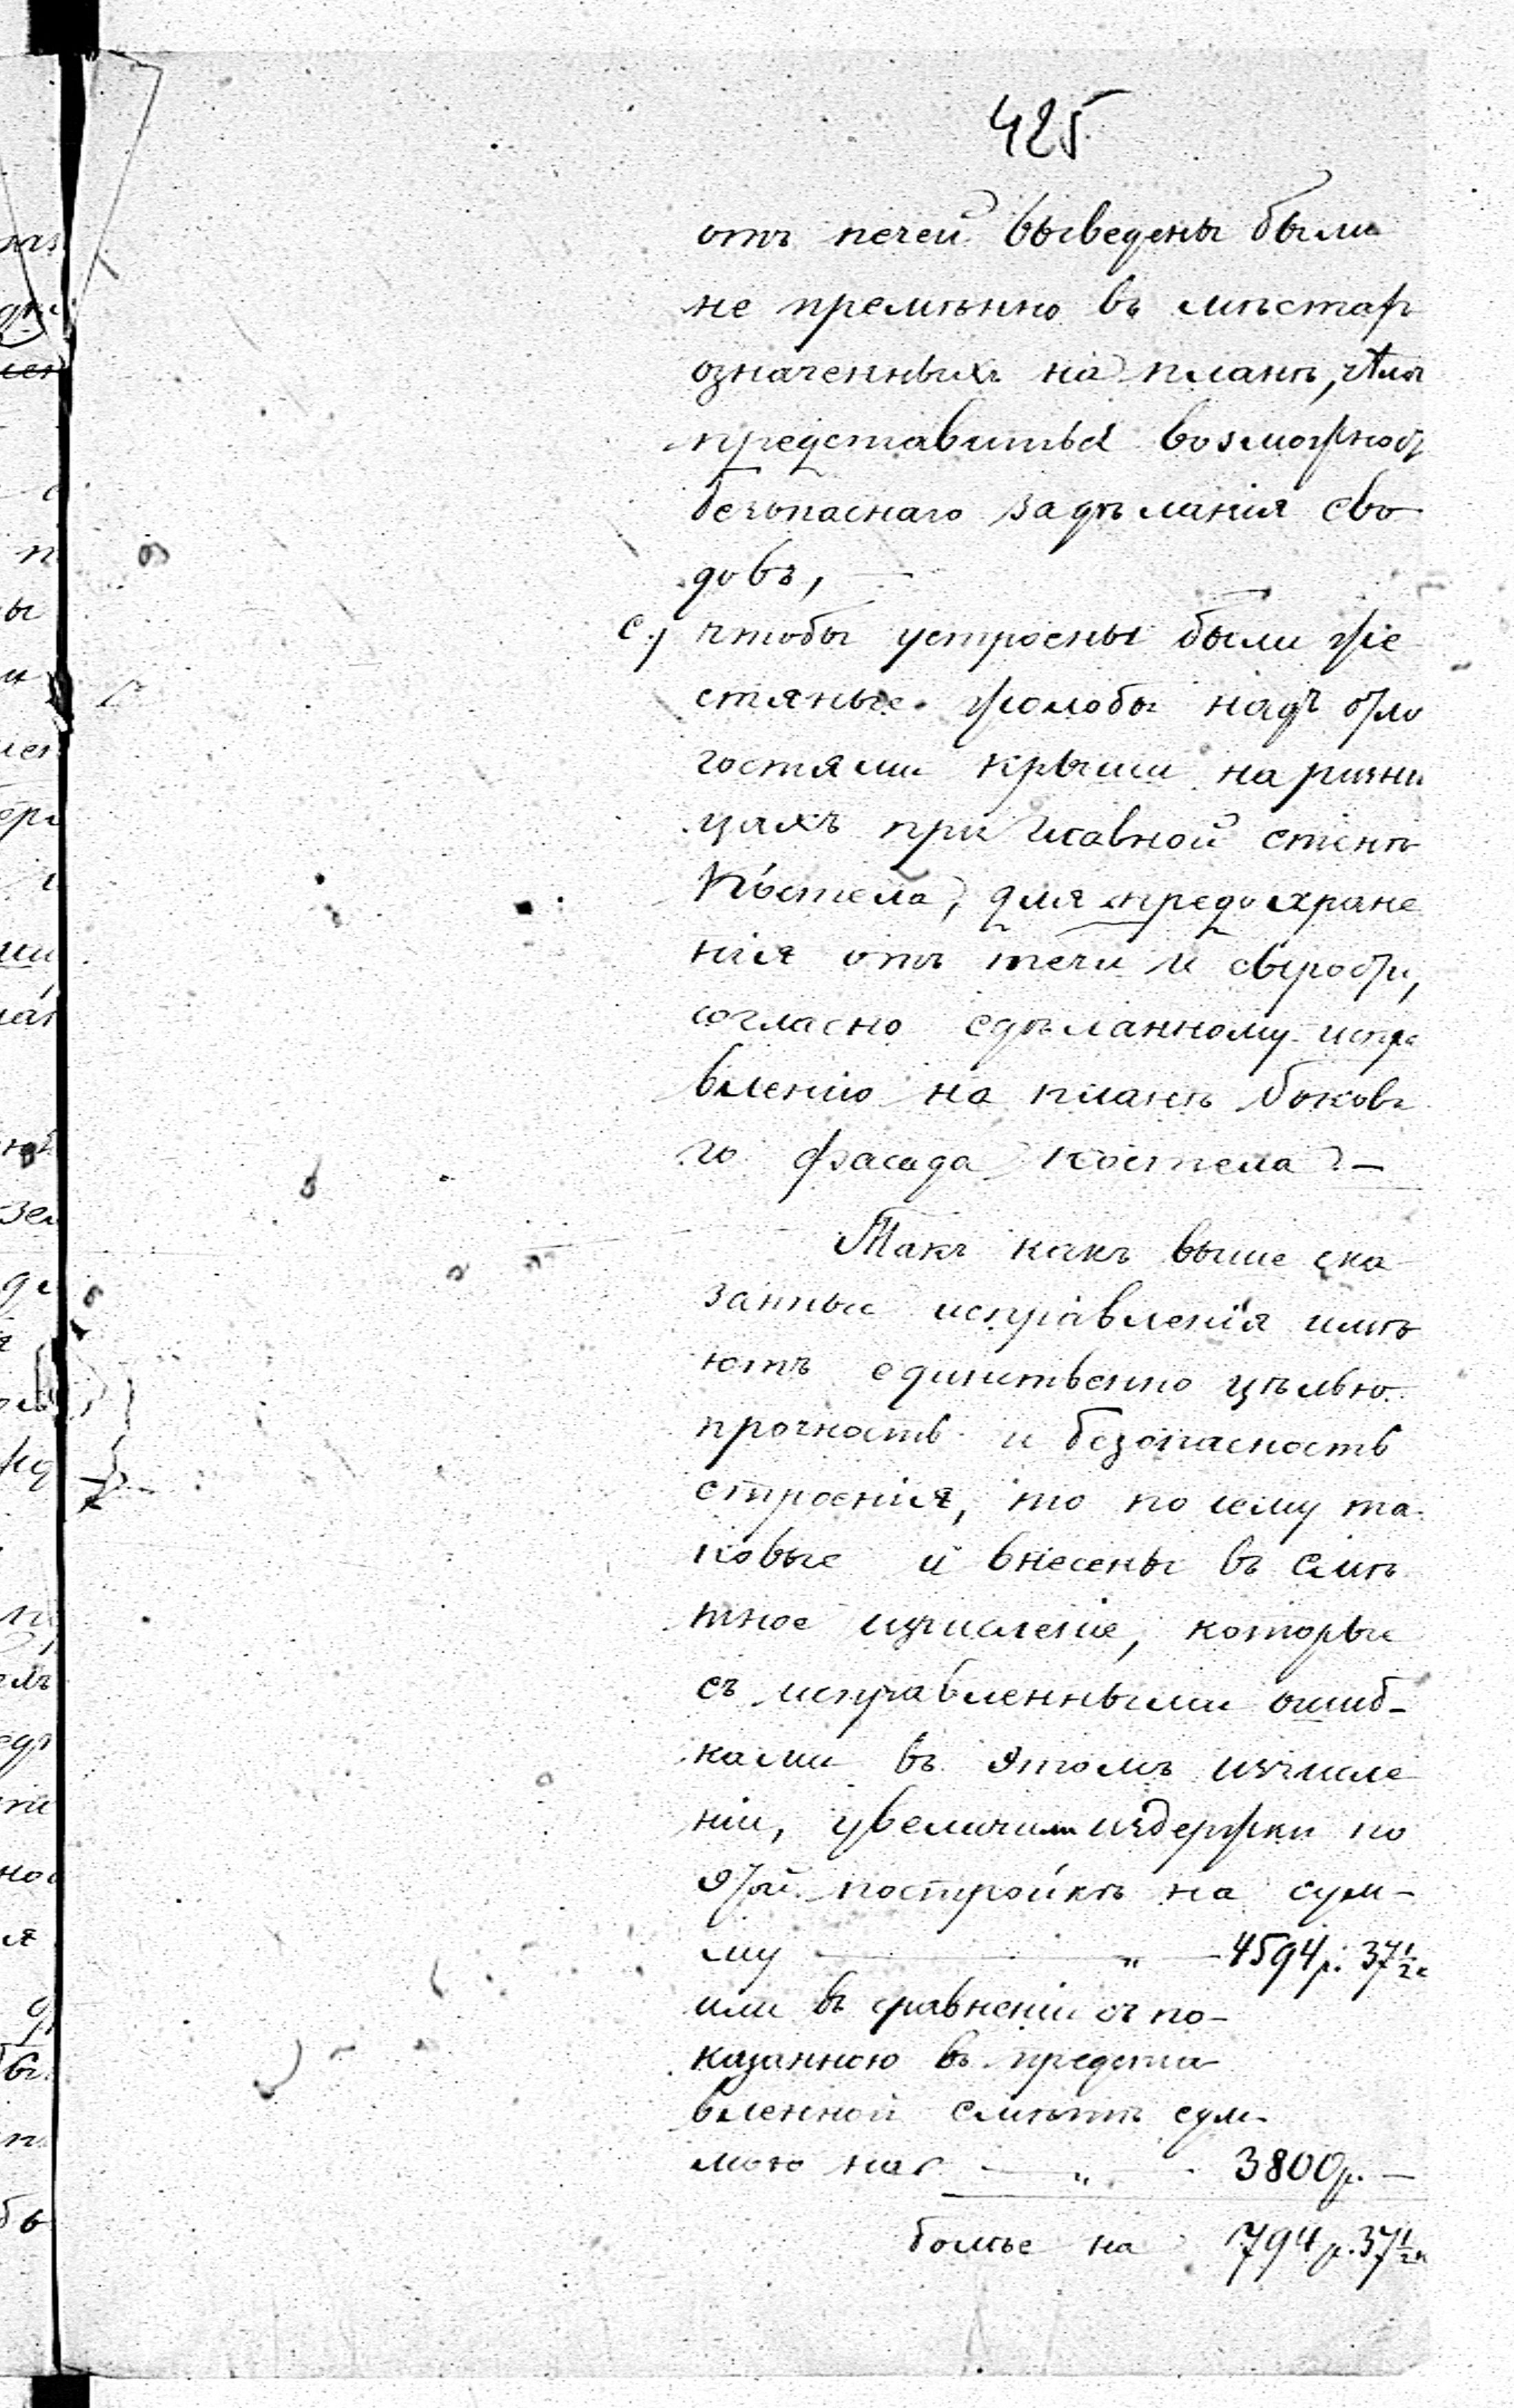 425
отъ печей выведены были
не премѣнно въ мѣстахъ
означенныхъ на планѣ, гдѣ
представиться возможность
безопаснаго задѣланія сво
довъ, —
с.) чтобы устроены были же
стяные жолобы надъ отло
гостями крыши на ризни
цахъ при главной стѣнѣ
Костела, для предохране
нія отъ течи и сырости,
согласно сдѣланному испра
вленію на планѣ боковa
го фасада костела —
Такъ какъ выше ска
занные исправленія имѣ
ютъ единственно цѣлью
прочность и безопасность
строенія, то по сему та
ковые и внесены въ смѣ
тное изчисленіе, которые
съ исправленными ошиб-
ками въ этомъ изчисле
ніи, увеличили издержки по
этой постройкѣ на сум-
му — " — 4594 р. 37½ к
или въ сравненіи съ по-
казанною въ предста
вленной смѣтѣ сум-
мою на — " — 3800 р. —
болѣе на 794 р. 37½ к